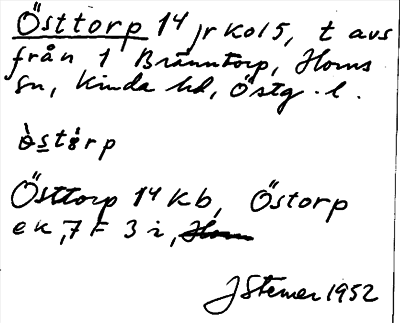 Östtorp 14 jr kol 5, t avs
från 1 Bränntorp, Horns
sn, Kinda hd, Östg. l.
ò̀stò̀rp
Östtorp 14 K b, Östorp
e k, 7 F 3 i, Horn
J Stemer 1952